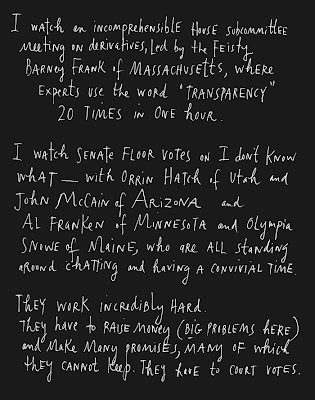 I watch an incomprehensible House subcommittee
meeting on derivatives, led by the feisty
Barney Frank of Massachusetts, where
experts use the word "TRANSPARENCY"
20 times in one hour.
I watch Senate floor votes on I don't know
what — with Orrin Hatch of Utah and
John McCain of Arizona and
Al Franken of Minnesota and Olympia
Snowe of Maine, who are ALL standing
around chatting and having a convivial time.
They work incredibly hard.
They have to raise money (BIG problems here)
and make many promises, many of which
they cannot keep. They have to court votes.